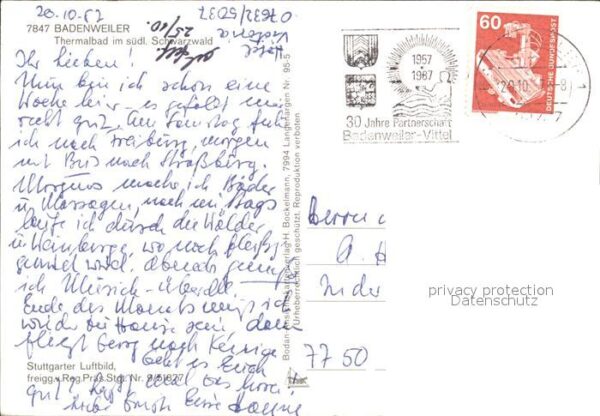 20.10.87
7847 BADENWEILER
Thermalbad im südl. Schwarzwald
07632/5037
Hotel
Ihr Lieben!
Nun bin ich schon eine
Woche hier - es gefällt mir
recht gut, am Samstag
ich nach Freiburg, morgen
mit Bus nach Straßburg.
Morgens mache ich Bäder
u. Massagen, nachmittags
laufe ich durch die Wälder
u. Weinberge, wo noch fleißig
wird. Abends
ich Musik - überall.
Ende des Monats muß ich
wieder zu Hause sein, dann
fliegt Georg nach Kenia.
Geht es Euch
gut?
Liebe Grüße Eure
Stuttgarter Luftbild,
freigg. v. Reg. Präs. Stgt. Nr. 9/51827
Bodan-Ansichtskartenverlag H. Bockelmann, 7994 Langenargen Nr. 95-5
Urheberrechtlich geschützt. Reproduktion verboten
1957
1987
30 Jahre Partnerschaft
Badenweiler-Vittel
60
DEUTSCHE BUNDESPOST
Herrn
A. H
7750
privacy protection
Datenschutz